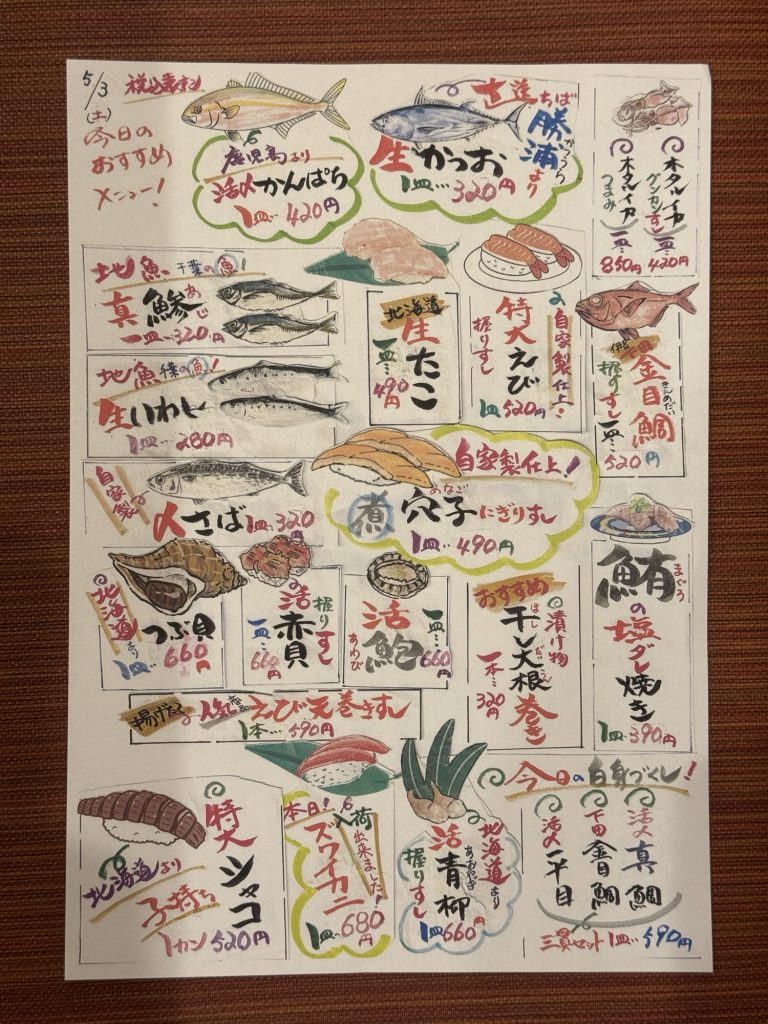 5/3
(土)
税込表示
今日の
おすすめ
メニュー!
鹿児島より
活〆かんぱち
1皿…420円
直送ちば
勝浦より
かつうら
生かつお
1皿…320円
ホタルイカ
グンカンすし
一皿…420円
ホタルイカ
つまみ
一皿…850円
地魚 千葉の魚!
真鯵
あじ
一皿…320円
地魚 千葉の魚!
生いわし
1皿…280円
北海道
生たこ
一皿…490円
自家製仕上!
特大えび
握りすし
1皿520円
下田
金目鯛
きんめだい
握りすし
一皿…520円
自家製
〆さば 1皿…320円
自家製仕上!
煮 穴子にぎりすし
あなご
1皿…490円
北海道より
つぶ貝
1皿…660円
活赤貝
握りすし
一皿…660円
活鮑
あわび
一皿…660円
おすすめ
漬け物
干し大根巻き
ほし だいこん
一本…320円
鮪の塩ダレ焼き
まぐろ
1皿…390円
揚げたて 人気商品 えび天巻きすし
1本…590円
特大シャコ
北海道より
子持ち
1カン520円
本日!
入荷出来ました!
ズワイカニ
1皿…680円
北海道より
活青柳
あおやぎ
握りすし
1皿660円
今日の白身づくし!
活〆真鯛
下田金目鯛
活〆平目
三貫セット1皿…590円